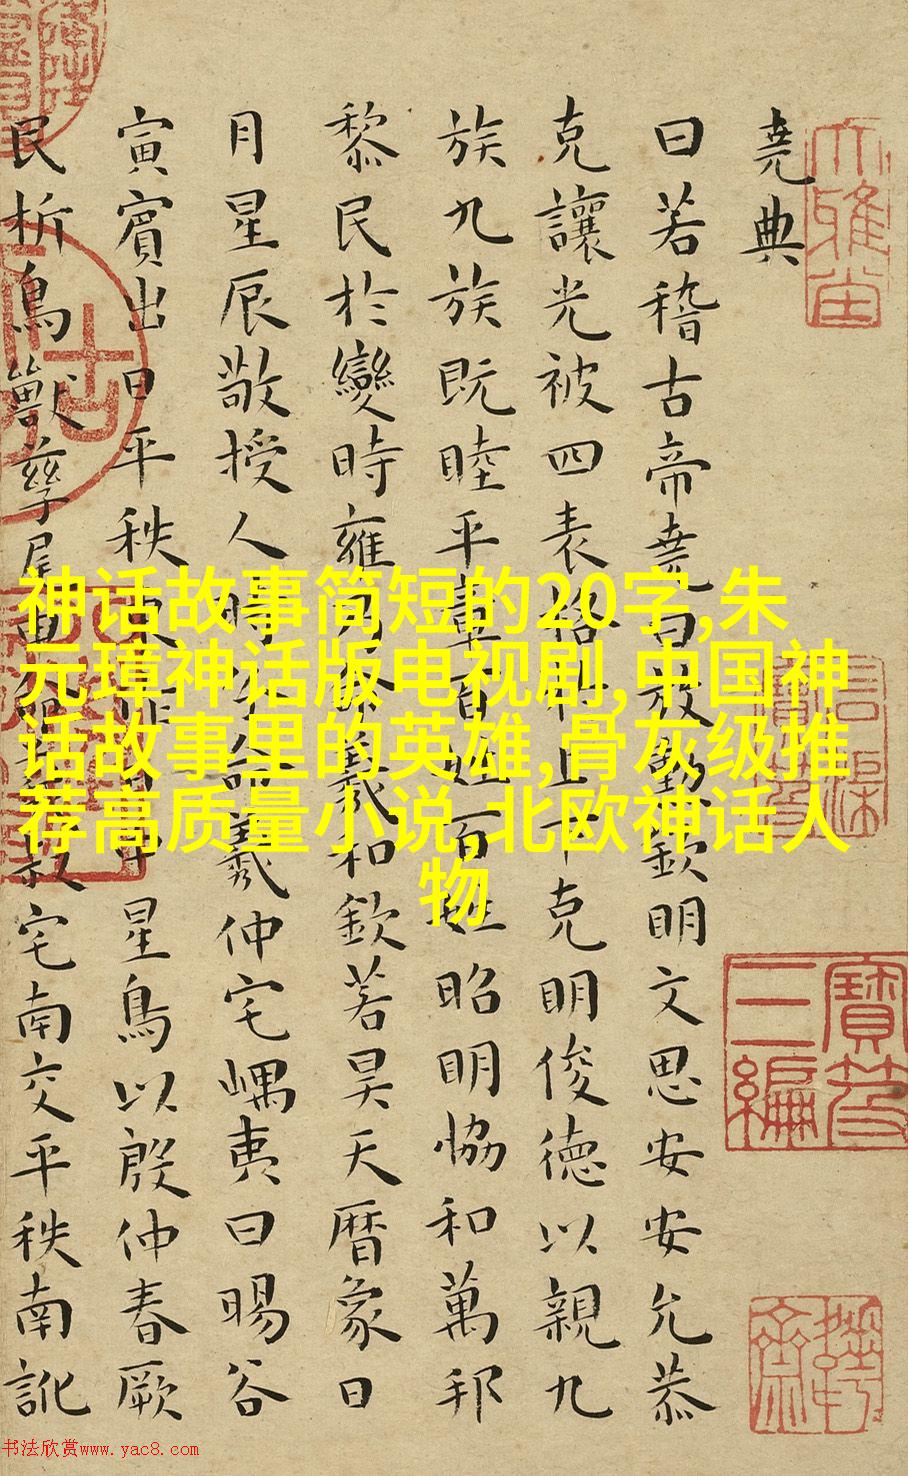 堯典
曰若稽古帝堯曰放勳欽明文思安安允恭
克讓光被四表格于上下克明俊德以親九
族九族既睦平章百姓百姓昭明恊和萬邦
黎民於變時雍乃命羲和欽若昊天曆象日
月星辰敬授人時分命羲仲宅嵎夷曰暘谷
寅賓出日平秩東作日中星鳥以殷仲春厥
民析鳥獸孳尾申命羲叔宅南交平秩南訛
寶笈
三編
神话故事简短的20字,朱
元璋神话版电视剧,中国神
话故事里的英雄,骨灰级推
荐高质量小说,北欧神话人
物
书法欣赏www.yac8.com